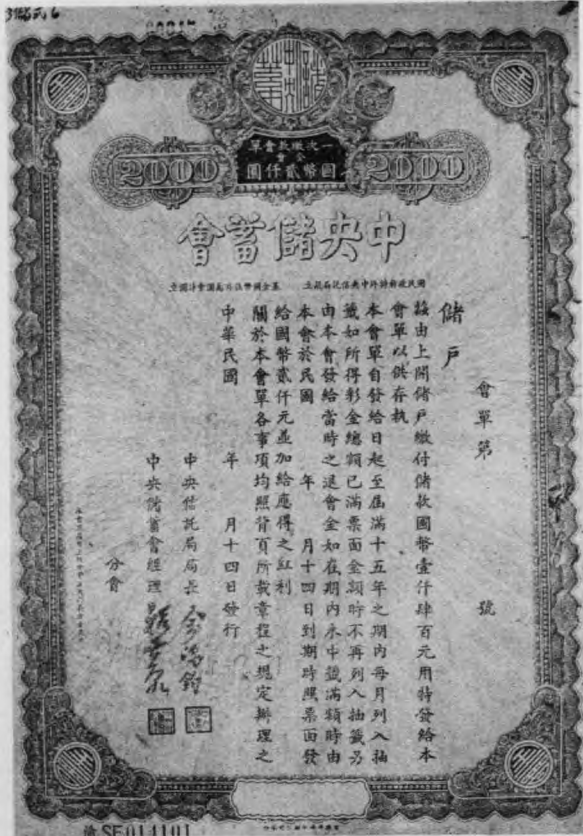 一次繳款會單
全會
國幣貳仟圓
2000
2000
中央儲蓄會
國民政府特許中央信託局設立
基金國幣伍百萬圓會計獨立
會單第 號
儲戶
茲由上開儲戶繳付儲款國幣壹仟肆百元用特發給本
會單以供存執
本會單自發給日起至屆滿十五年之期內每月列入抽
籤如所得彩金總額已滿票面金額時不再列入抽籤另
由本會發給當時之退會金如在期內未中籤滿額時由
本會於民國 年 月十四日到期時照票面發
給國幣貳仟元並加給應得之紅利
關於本會單各事項均照背頁所載章程之規定辦理之
中華民國 年 月十四日發行
中央信託局局長
中央儲蓄會經理
分會
SF014101